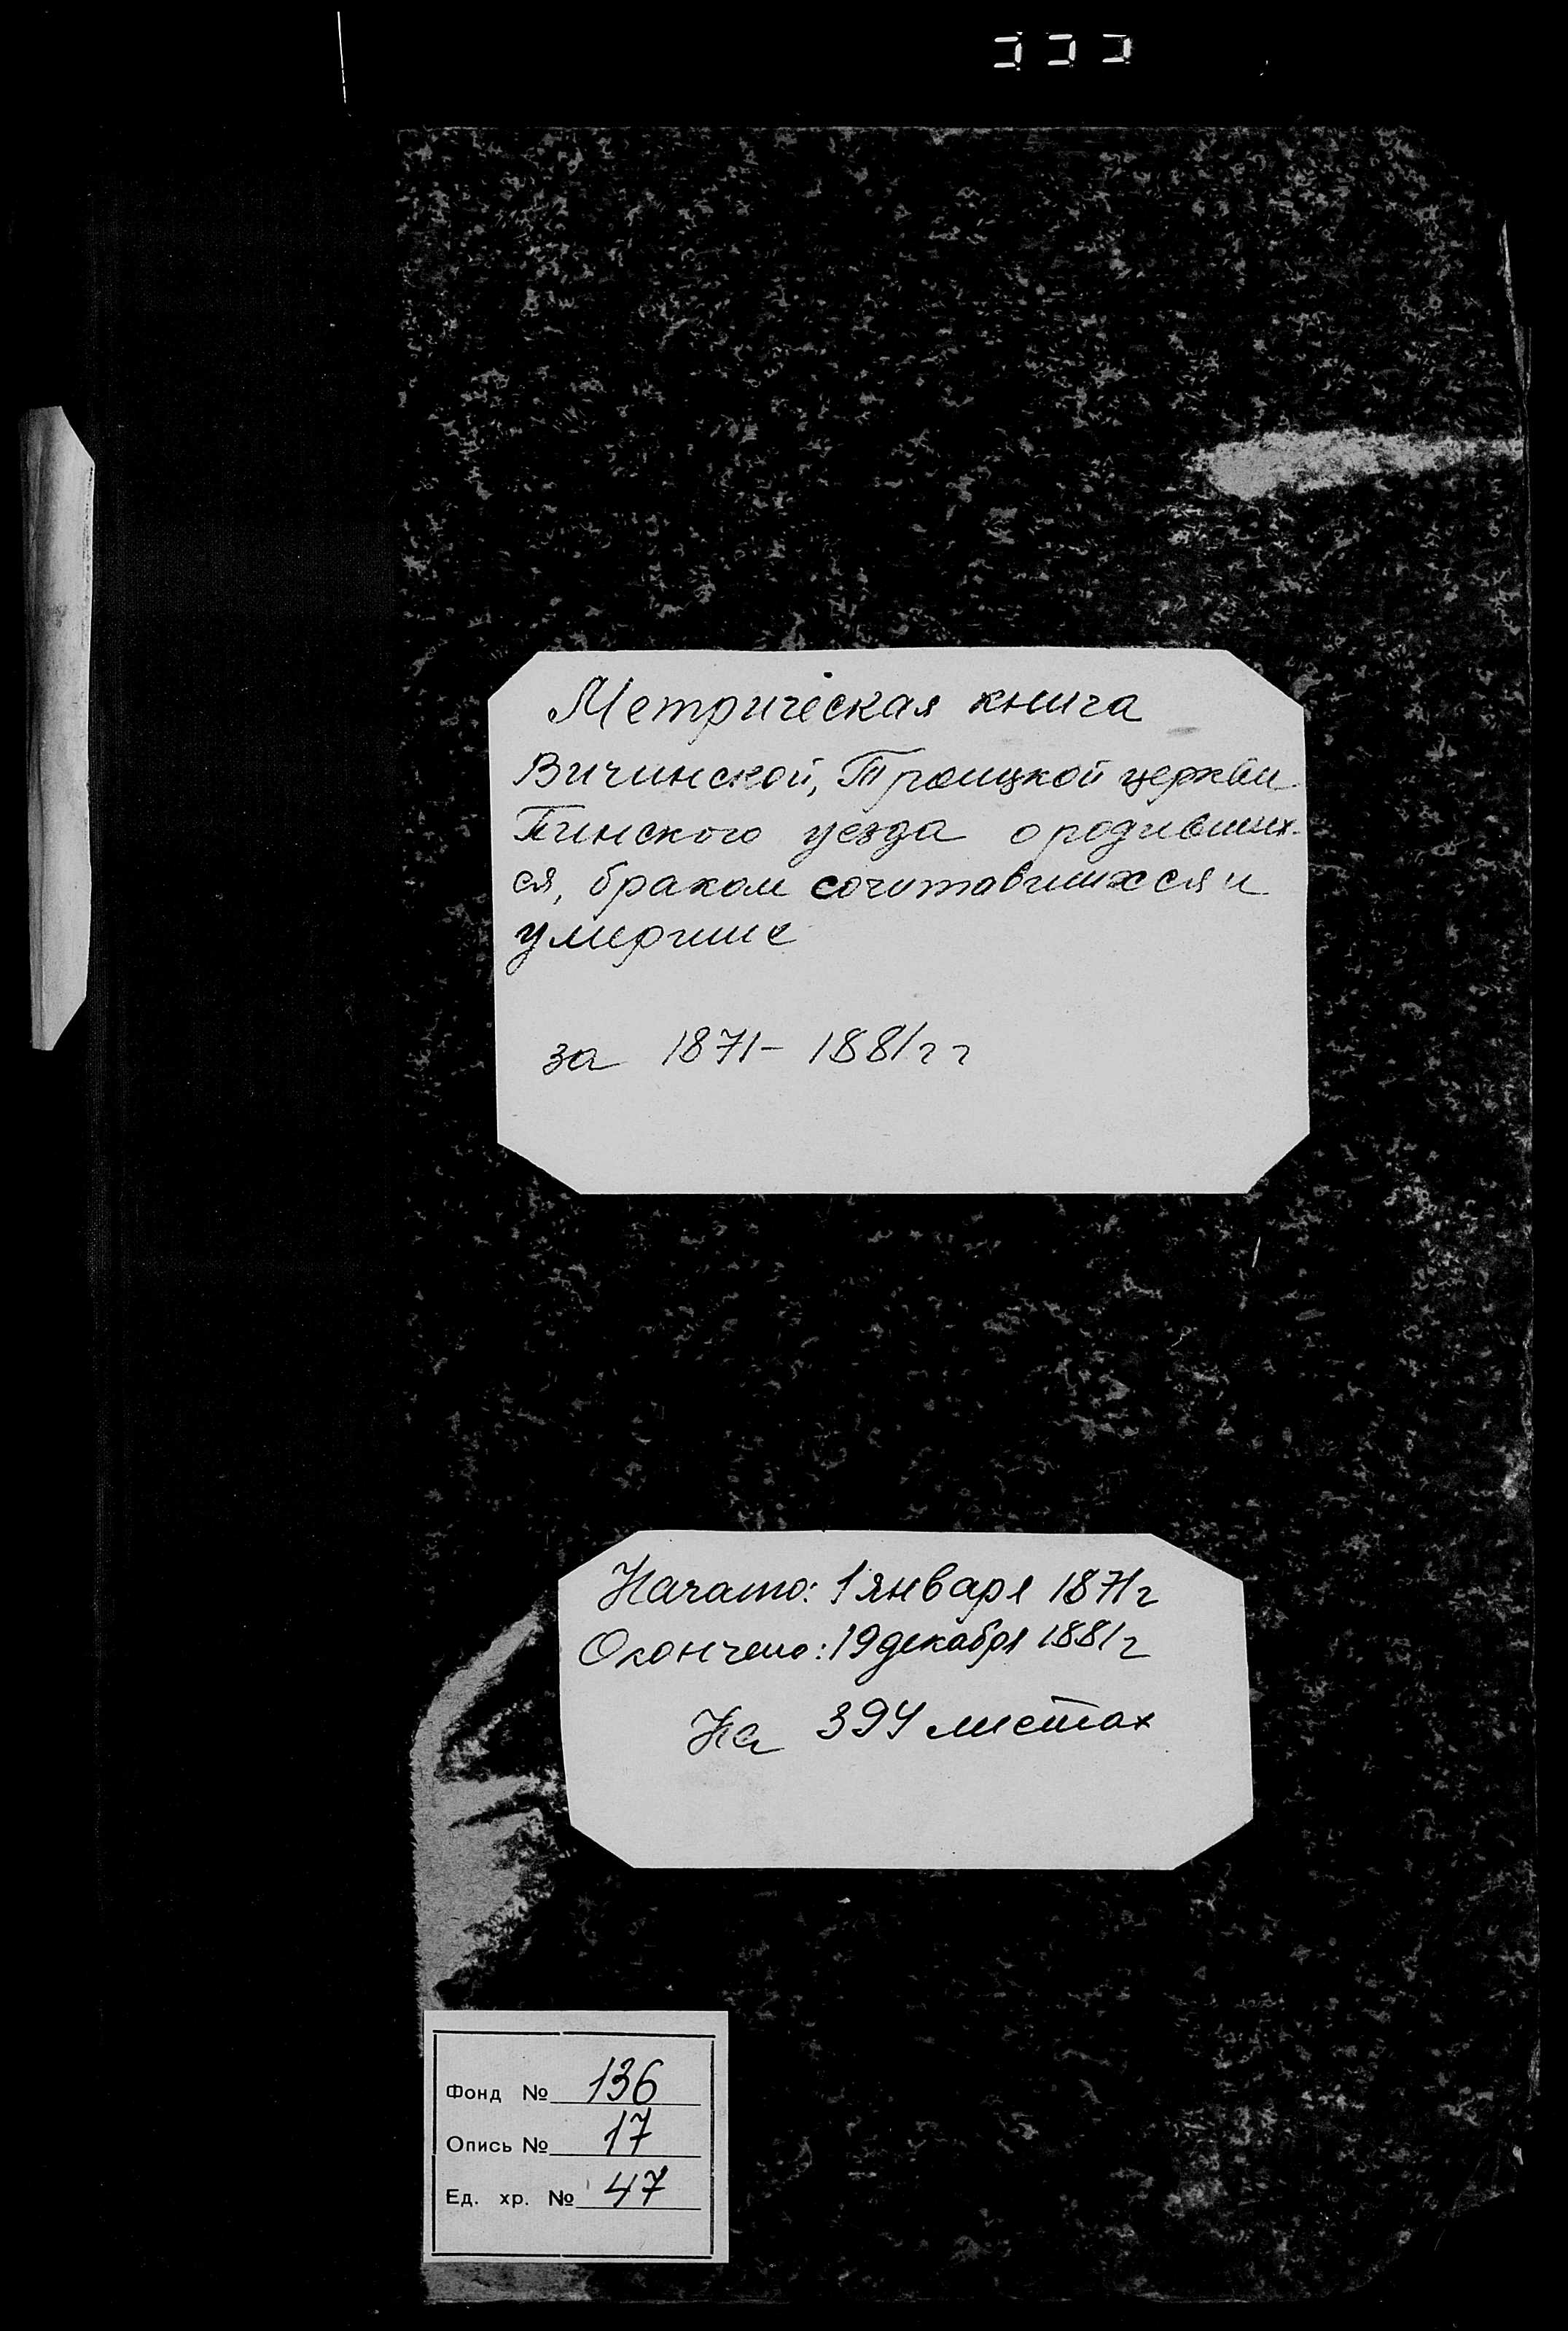 Метрическая книга
Вичинской, Троицкой церкви
Пинского уезда о родивших-
ся, браком сочитавшихся и
умершие
за 1871 – 1881 гг
Начато: 1 января 1871 г
Окончено: 19 декабря 1881 г
На 394 листах
Фонд № 136
Опись № 17
Ед. хр. № 47